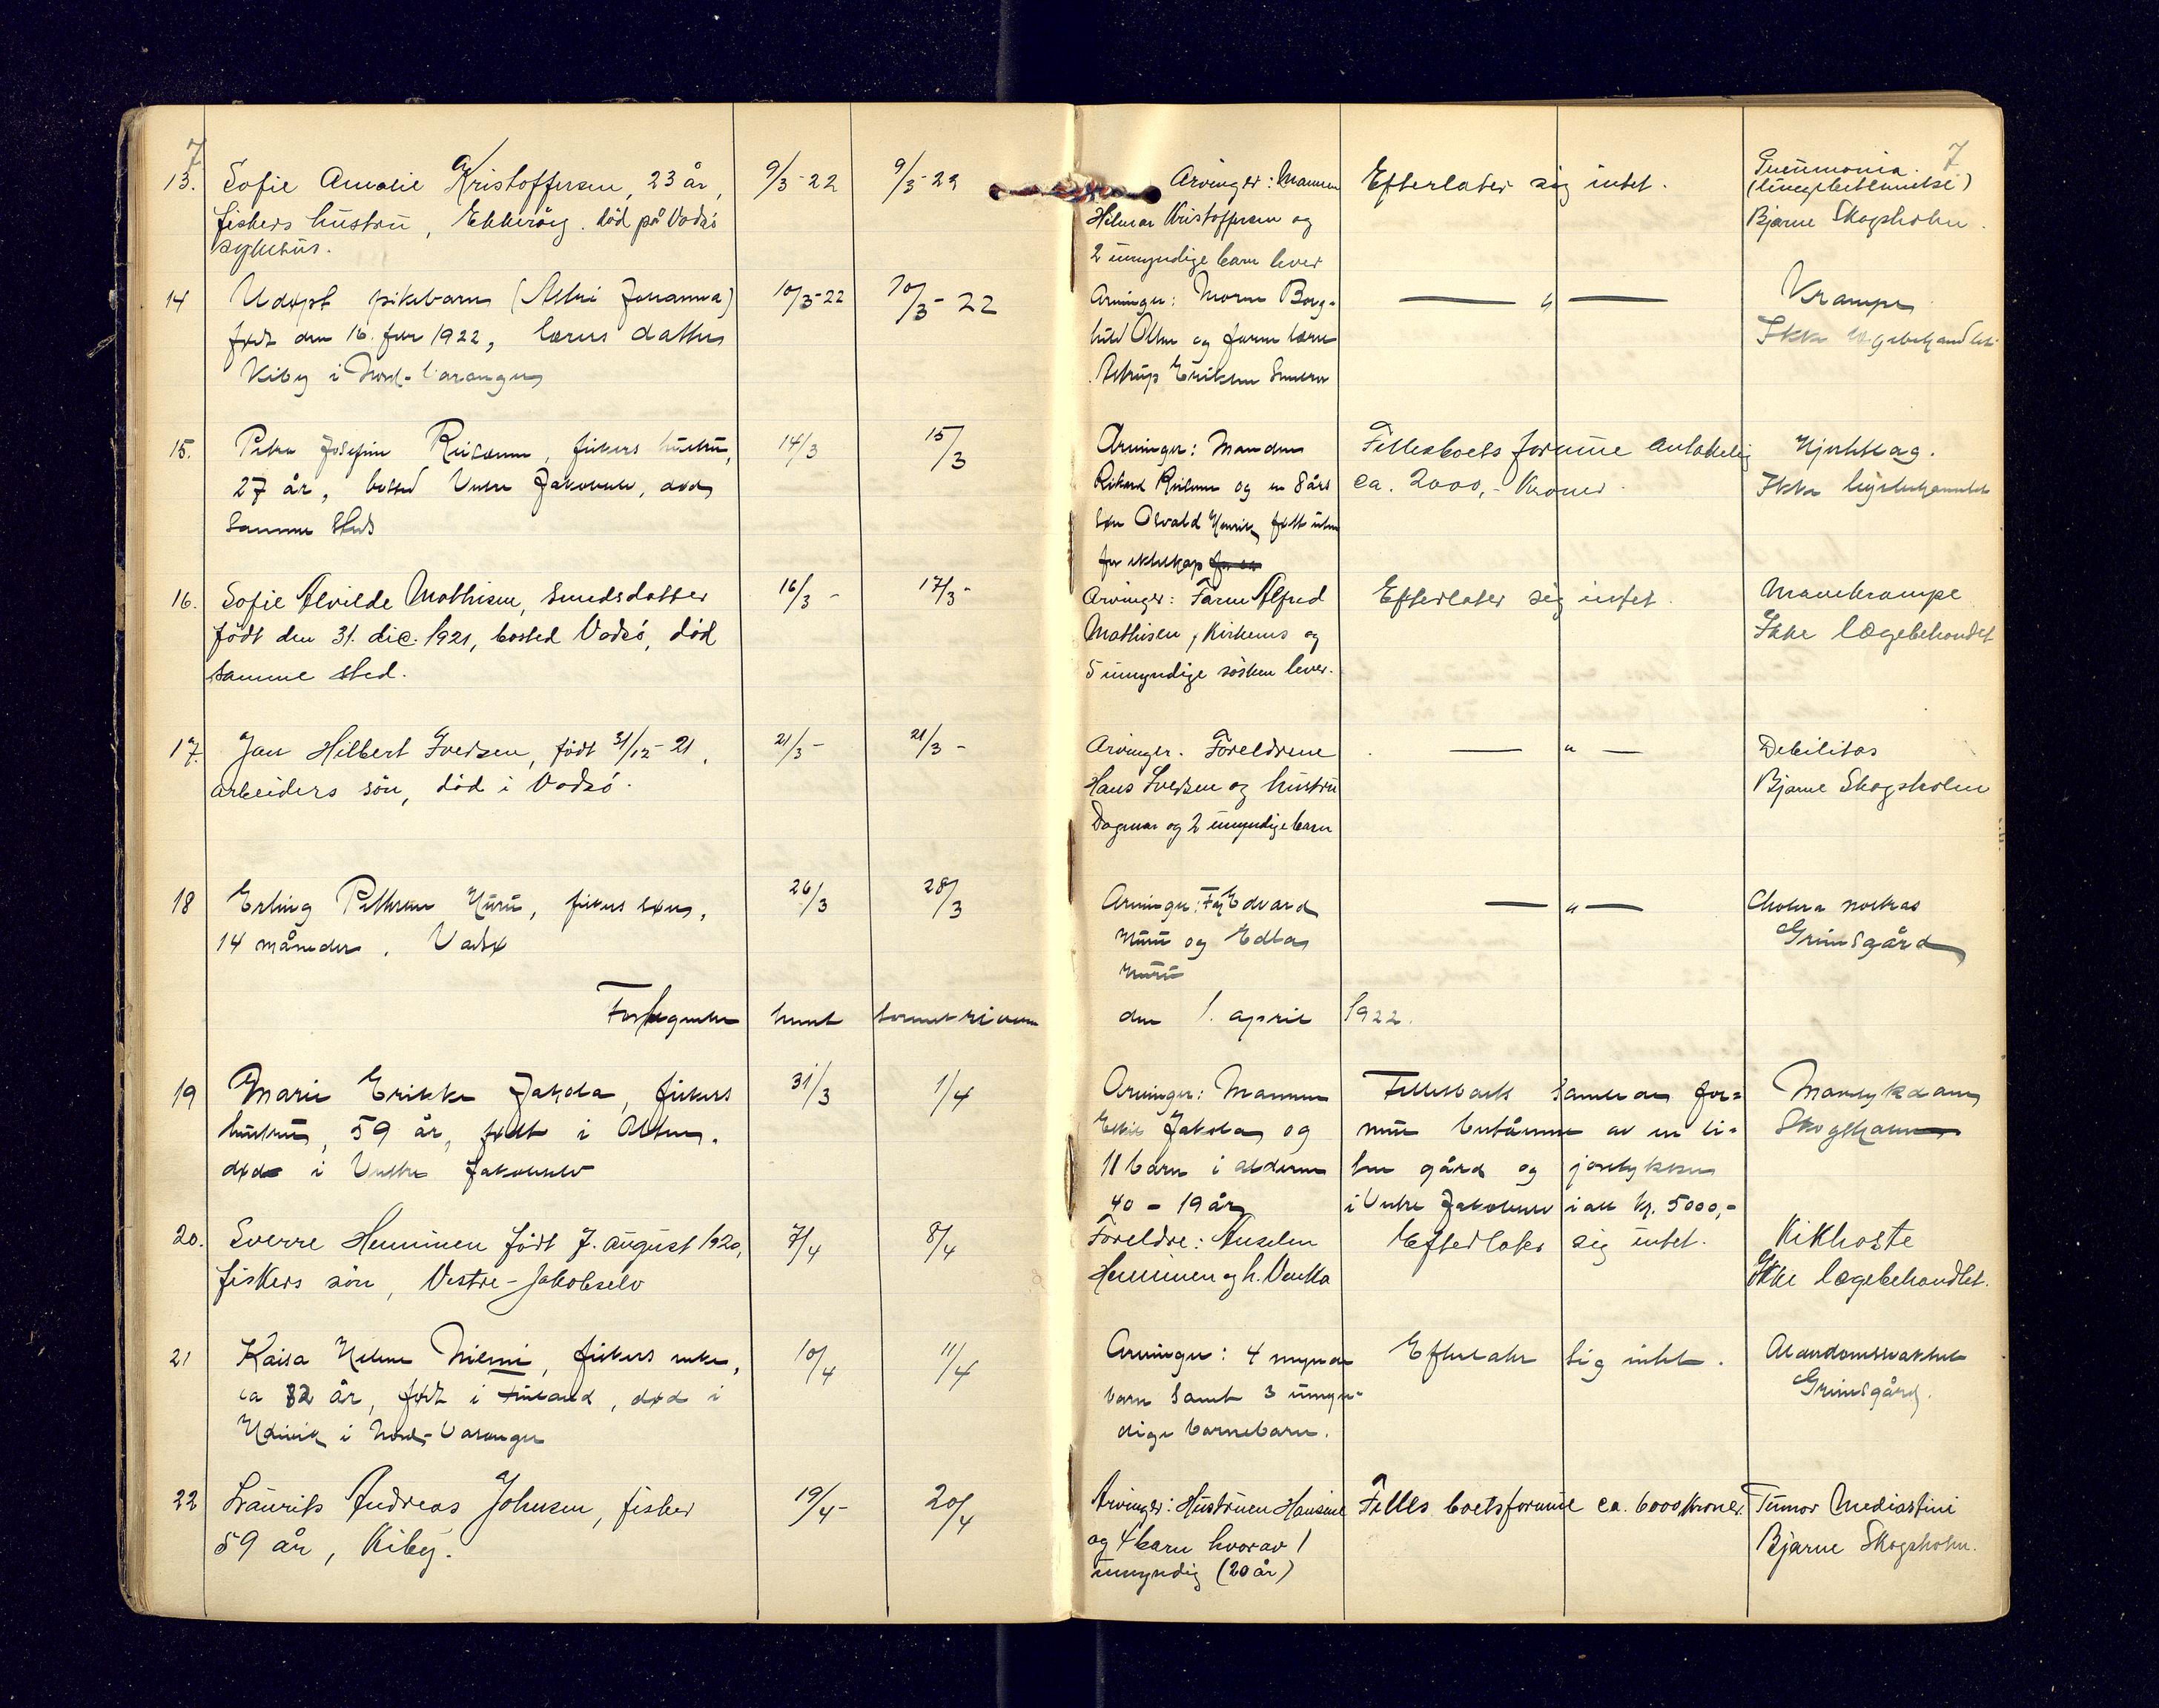 7
7
13. Sofie Amalie Kristoffersen, 23 år, 9/3-22 9/3-22 Arvinger: Mannen Efterlater sig intet. Pneumonia.
fiskers hustru, Ekkeröy. död på Vadsö Hilmar Kristoffersen og (lungebetennelse)
sykehus. 2 umyndige barn lever Bjarne Skogsholm.
14 Udøpt pikebarn (Johanna) 10/3-22 10/3-22 Arvinger: Moren Borg- — " — Krampe
født den 16. febr 1922, lærers datter hild og faren lærer Ikke lægebehandlet
Kiby i Nord-Varanger Astrup Eriksen
15. Petra Josefine, fiskers hustru, 14/3 15/3 Arvinger: Manden Fellesboets formue antakelig Hjerteslag.
27 år, bosted Vestre Jakobselv, død Rikard og en 8 års ca. 2000,- Kroner. Ikke lægebehandlet
samme sted søn Osvald Henrik født uten
for ekteskap
16. Sofie Alvilde Mathisen, smedsdatter 16/3 - 17/3 - Arvinger: Faren Alfred Efterlater sig intet. Mavekrampe
födt den 31. dec. 1921, bosted Vadsö, död Mathisen, Kirkenes og Ikke lægebehandlet
samme sted. 5 umyndige sösken lever.
17. Jan Hilbert Svedsen, födt 31/12-21, 21/3 - 21/3 - Arvinger. Foreldrene — " — Debilitas
arbeiders sön, död i Vadsö. Hans Svedsen og hustru Bjarne Skogsholm
Dagmar og 2 umyndige barn
18 Erling Pettersen Nuru, fiskers søn, 26/3 28/3 Arvinger: Edvard — " — Cholera nostras
14 måneder. Vadsø Nuru og Edla Grimsgård
Nuru
Fortegnelse sorenskriveren den 1. april 1922.
19 Marie Erikke Jakola, fiskers 31/3 1/4 Arvinger: Mannen Fellesboets samlede for- Mavesykdom
hustru, 59 år, født i Alten, Jakola og mue bestående av en li- Skogsholm
død i Vestre Jakobselv 11 barn i alderen ten gård og jordstykker
40 - 19 år i Vestre Jakobselv i alt kr. 5000,-
20. Sverre Henninen födt 7. august 1920, 7/4 8/4 Foreldre: Anselm Efterlater sig intet. Kikhoste
fiskers sön, Vestre-Jakobselv Henninen og h. Ikke lægebehandlet.
21 Kaisa Helene Niemi, fiskers enke, 10/4 11/4 Arvinger: 4 myndige Efterlater sig intet. Alderdomssvakhet
ca 82 år, født i Finland, død i barn samt 3 umyn- Grimsgård.
i Nord-Varanger dige barnebarn.
22 Laurits Andreas Johnsen, fisker 19/4 - 20/4 Arvinger: Hustruen Hansine Felles boetsformue ca. 6000 Kroner. Tumor Mediastini
59 år, Kiby. og 4 barn hvorav 1 Bjarne Skogsholm.
umyndig (20 år)